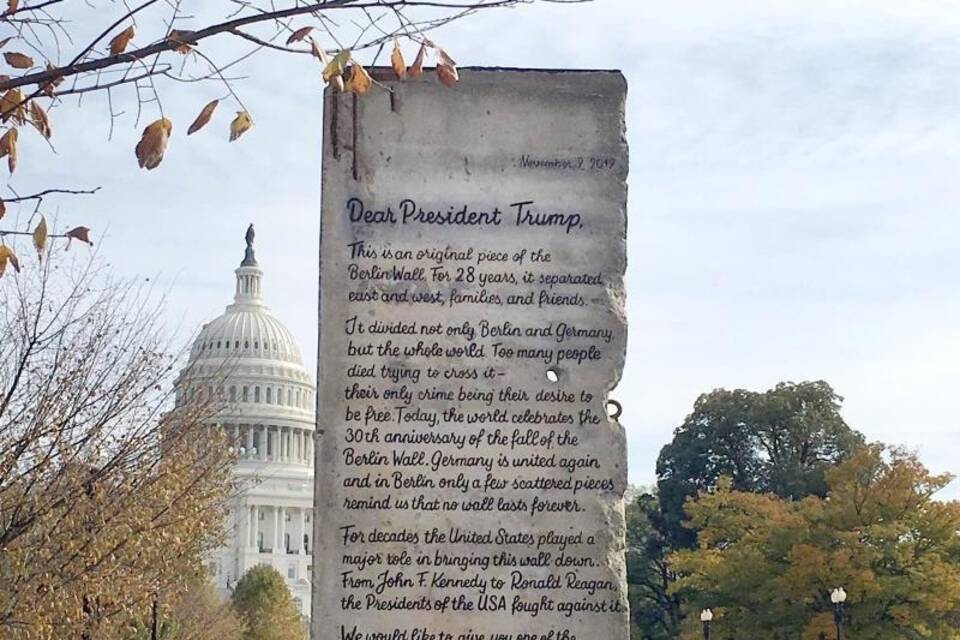 November 9, 2019
Dear President Trump,
This is an original piece of the
Berlin Wall. For 28 years, it separated
east and west, families, and friends.
It divided not only Berlin and Germany,
but the whole world. Too many people
died trying to cross it –
their only crime being their desire to
be free. Today, the world celebrates the
30th anniversary of the fall of the
Berlin Wall. Germany is united again
and in Berlin only a few scattered pieces
remind us that no wall lasts forever.
For decades the United States played a
major role in bringing this wall down.
From John F. Kennedy to Ronald Reagan,
the Presidents of the USA fought against it.
We would like to give you one of the